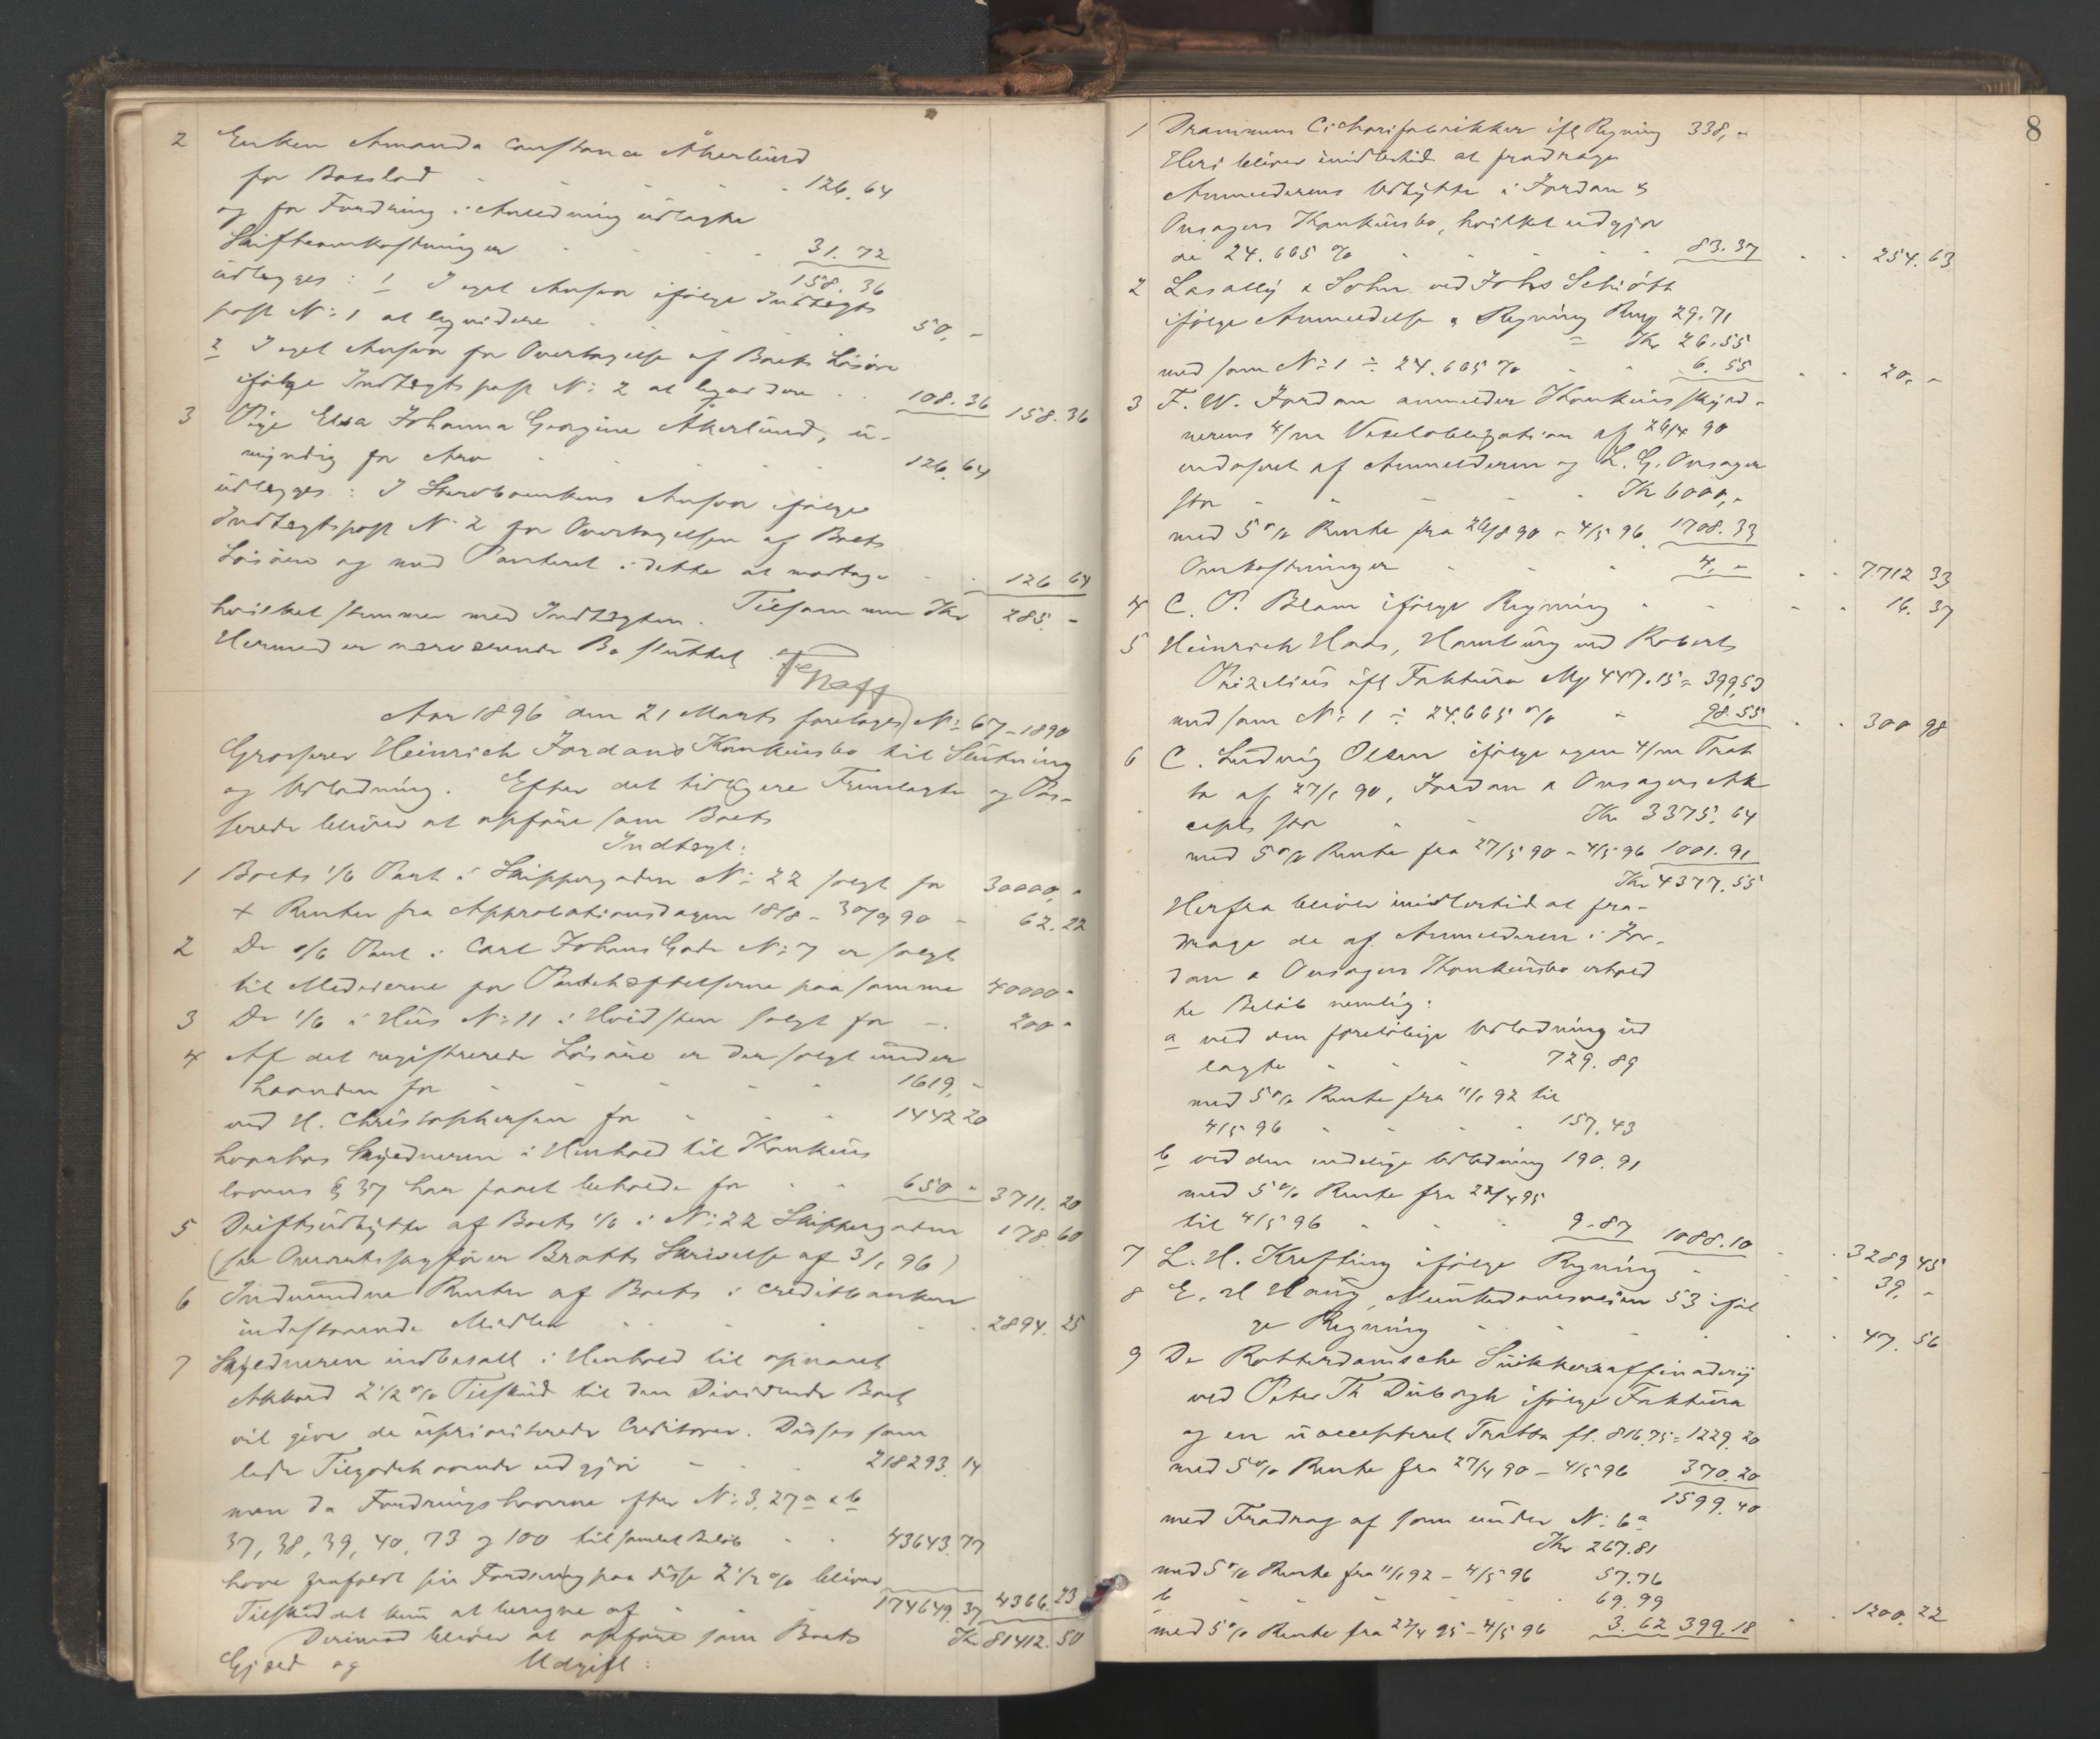 2 Enken Amanda Constance Åkerlund
for Boeslod - - - - 126.64
og for Fordring i Anledning udlagte
Skifteomkostninger - - - 31.72
158.36
udlægges: 1 I eget Ansvar ifølge Indtægts
post No 1 at liqvidere - - - 50,-
2 I eget Ansvar for Overtagelse af Boets Løsøre
ifølge Indtægtspost No 2 at liqvidere - - 108.36 158.36
3 Pige Elsa Johanna Georgine Åkerlund, u-
myndig for Arv - - - - 126.64
udlægges: I Stervboenkens Ansvar ifølge
Indtægtspost No 2 for Overtagelsen af Boets
Løsøre og med Panteret i dette at modtage - - 126 64
hvilket stemmer med Indtægten. Tilsammen Kr 285.-
Hermed er nærværende Bo sluttet.
Aar 1896 den 21 Marts foretoges No 67-1890
Grosserer Heinrich Jordans Konkursbo til Slutning
og Udlodning. Efter det tidligere Fremlagte og Pas-
serede bliver at opføre som Boets
Indtægt:
1 Boets 1/6 Part i Skippergaden No 22 solgt for 30000,-
+ Renter fra Approbationsdagen 18/8 - 30/9 90 - 62.22
2 Do 1/6 Part i Carl Johans Gade No 7 er solgt
til Medeierne for Pantehæftelserne paa samme 40000-
3 Do 1/6 i Hus No 11 i Hvidsten solgt for - 200-
4 Af det registrerede Løsøre er der solgt under
haanden for - - - - 1619,-
ved H. Christophersen for - - - 1442 20
hvorhos Skyldneren i Henhold til Konkurs
lovens § 37 har faaet beholde for - - 650 - 3711.20
5 Driftsudbytte af Boets 1/6 i No 22 Skippergaden 178.60
(se Overretssagfører Bratts Skrivelse af 3/1 96)
6 Indvundne Renter af Boets i Creditbanken
indestaaende Midler - - - - 2894.25
7 Skyldneren indbetalt i Henhold til opnaaet
Akkord 2 1/2 % Tilskud til den Dividende Boet
vil give de upriviterede Creditorer. Disses sam
lede Tilgodehavende udgjør - - - 218293.14
men da Fordringshaverne efter No 3, 27 a & b
37, 38, 39, 40, 73 og 100 tilsamlet Beløb - - 43643.77
have frafaldt sin Fordring paa disse 2 1/2 % bliver
Tilskuddet kun at beregne af - - - 174649.37 4366.23
Kr 81412.50
Derimod bliver at opføre som Boets
Gjæld og Udgift:
8
1 Drammens Cichorifabrikker ifl Regning 338,-
Heri bliver imidlertid at fradrage
Anmelderens Udbytte i Jordan &
Onsagers Konkursbo, hvilket udgjør
de 24.665 % - - - - 83.37 - - 254.63
2 Lasally & Sohn ved Johs Schiøtt
ifølge Anmeldelse & Regning Rmp 29.71
= Kr 26.55
med som No 1 ÷ 24.665 % - - 6.55 - - 20,-
3 F. W. Jordan anmelder Konkursskyld-
nerens 4/m Vexelobligation af 26/4 90
endosseret af Anmelderen og L. G. Onsager
stor - - - - Kr 6000,-
med 5 % Rente fra 26/8 90 - 4/5 96 1708.33
Omkostninger - - - 4,- - - 7712 33
4 C. P. Beam ifølge Regning - - - - 16.37
5 Heinrich Haas, Hamburg ved Roberts
Prizelius ifl Faktura Mp 447.15 = 399,53
med som No 1 ÷ 24.665 % - 98.55 - - 300 98
6 C. Ludvig Olsen ifølge egen 4/m Trat
te af 27/1 90, Jordan & Onsagers Ak
cepts stor - - Kr 3375.64
med 5 % Rente fra 27/5 90 - 4/5 96 1001.91
Kr 4377.55
Herfra bliver imidlertid at fra-
drage de af Anmelderen i Jor-
dan & Onsagers Konkursbo erhold
te Beløb nemlig:
a ved den foreløbige Udlodning ud
lagte - - - 729.89
med 5 % Rente fra 11/1 92 til
4/5 96 - - - - 157.43
b ved den endelige Udlodning 190.91
med 5 % Rente fra 22/4 95
til 4/5 96 - - - 9.87 1088.10 - - 3289 45
7 L. H. Krefting ifølge Regning - - - 39,-
8 E. H Haug, Munkedamsveien 53 iføl
ge Regning - - - - - 47.56
9 De Rotterdamsche Suikkerraffinaderij
ved Peter Th Duborgh ifølge Faktura
og en uaccepteret Tratte fl. 816.75 = 1229.20
med 5 % Rente fra 27/4 90 - 4/5 96 370.20
1599.40
med Fradrag af som under No 6 a
Kr 267.81
med 5 % Rente fra 11/1 92 - 4/5 96 57.76
b - - - - - 69.99
med 5 % Rente fra 22/4 95 - 4/5 96 3.62 399.18 - - 1200.22